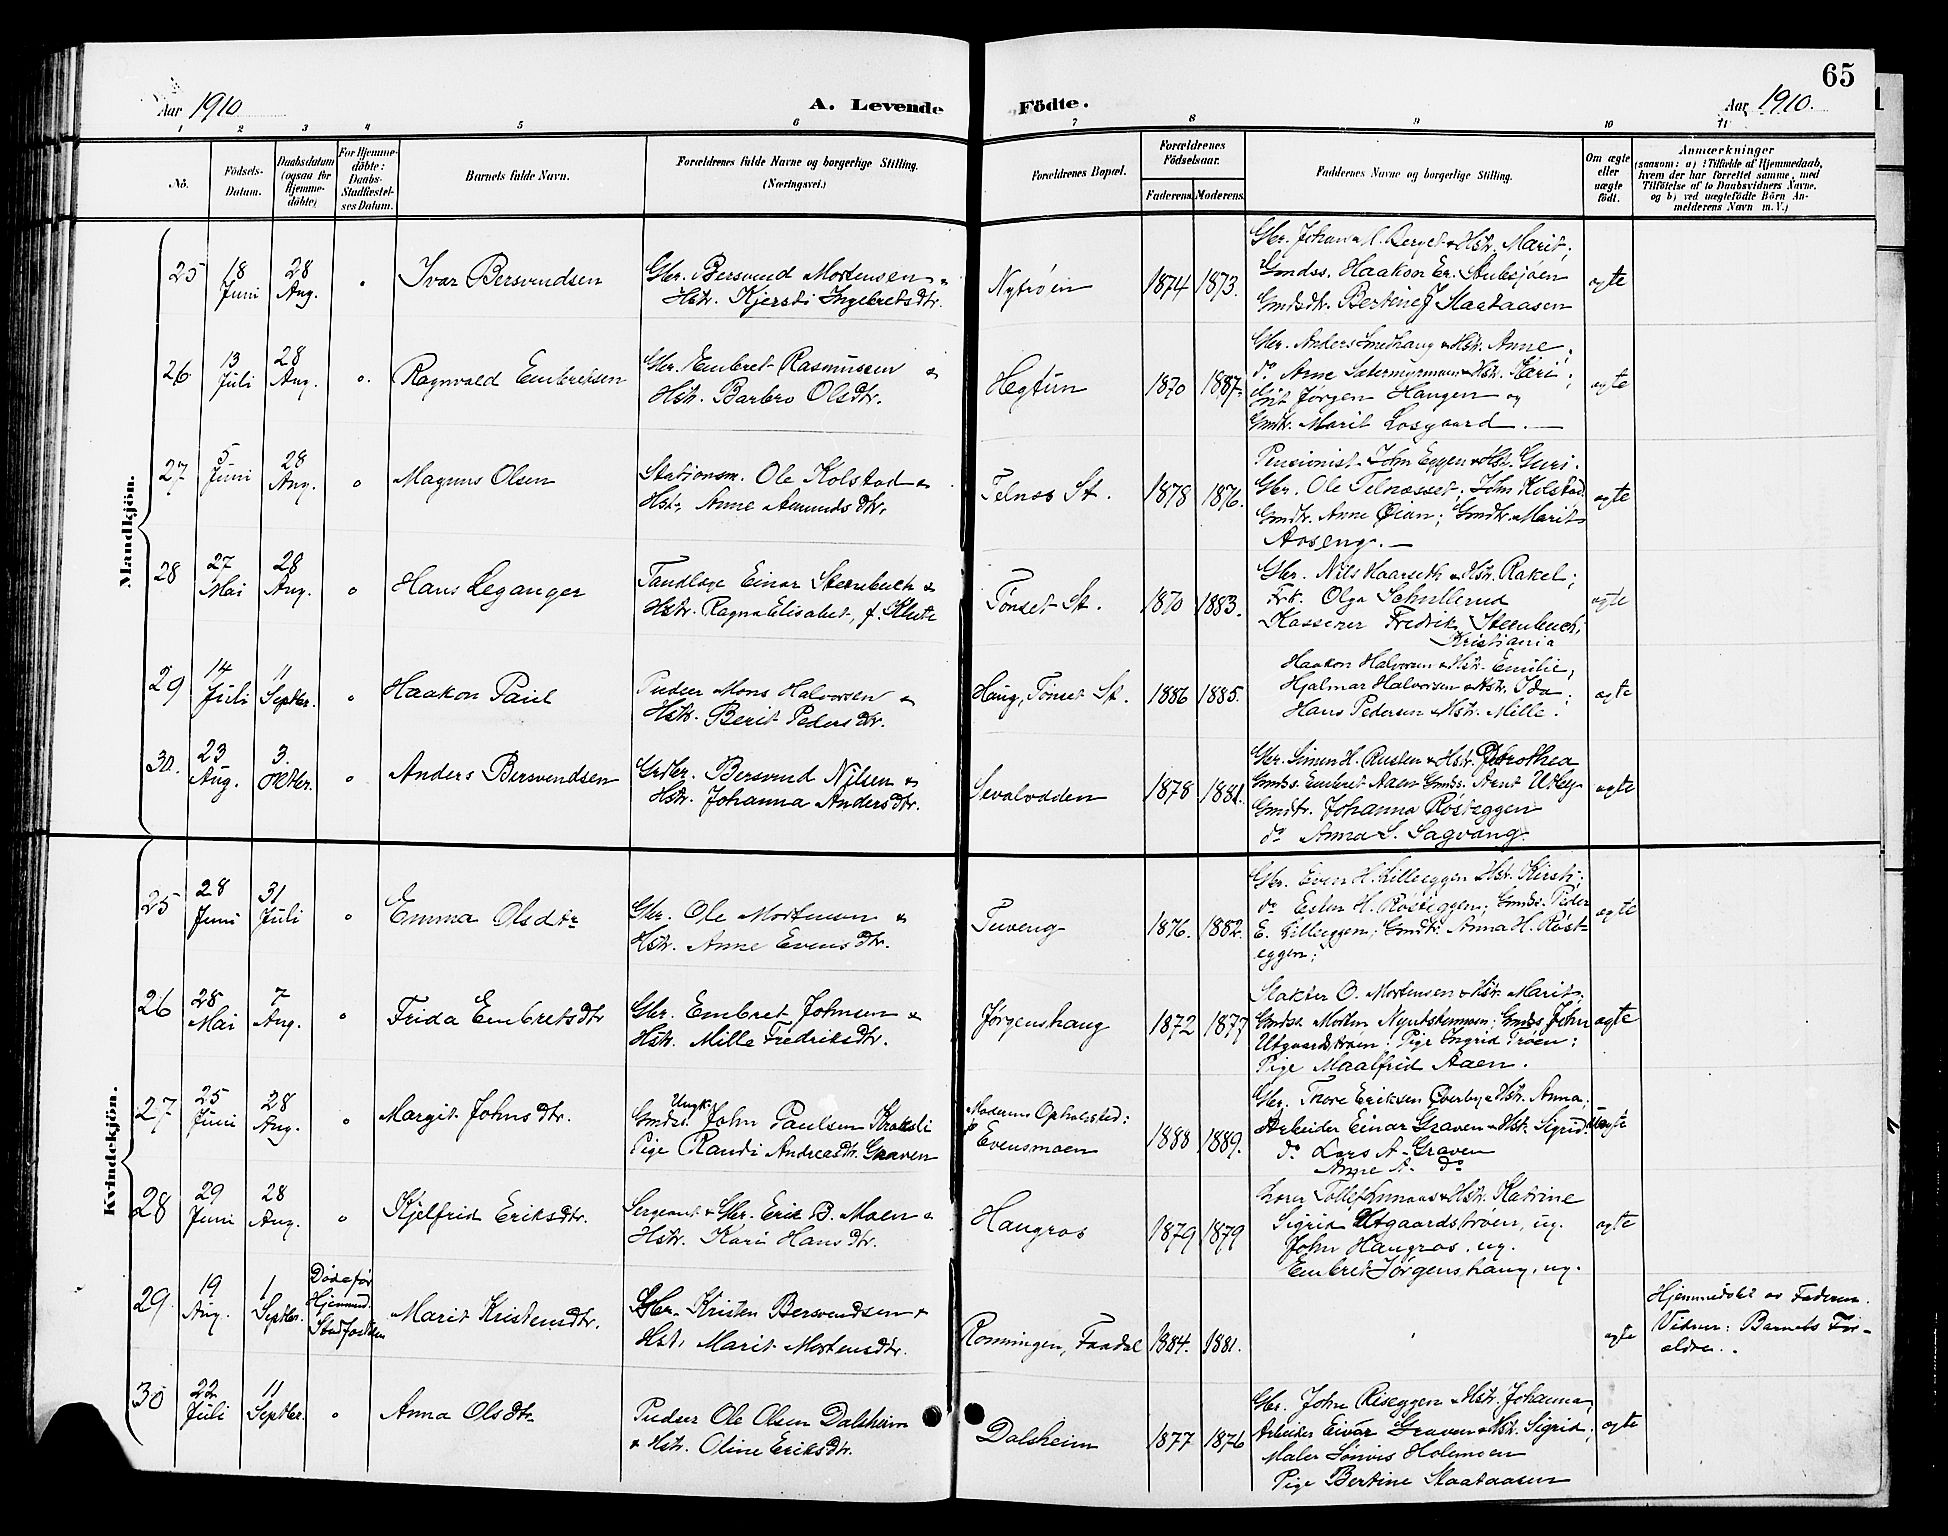 65
Aar 1910
A. Levende Födte.
Aar 1910.
1 2 3 4 5 6 7 8 9 10 11
No.
Födsels-
Datum.
Daabsdatum
(ogsaa for
Hjemme-
döbte)
For Hjemme-
döbte:
Daabs-
Stadfæstel-
ses Datum.
Barnets fulde Navn.
Forældrenes fulde Navne og borgerlige Stilling.
(Næringsvei.)
Forældrenes Bopæl.
Forældrenes
Födselsaar.
Faderens. Moderens.
Faddernes Navne og borgerlige Stilling.
Om ægte
eller
uægte
födt.
Anmærkninger
(saasom: a) i Tilfælde af Hjemmedaab,
hvem der har forrettet samme, med
Tilföielse af to Daabsvidners Navne,
og b) ved uægtefödte Börn An-
melderens Navn m. V.)
Mandkjön.
25
18
Juni
28
Aug.
"
Ivar Bersvendsen
Gbr. Bersvend Mortensen &
Hstr. Kjersti Ingebretsdtr.
Nytrøen
1874 1873.
Hstr. Marit;
Gmdss. Haakon Er. Stubsjøen
Gmdsdtr. Bertine J Staataasen
ægte
26
13
Juli
28
Aug.
"
Ragnvald Embretsen
Gbr. Embret Rasmusen &
Hstr. Barbro Olsdtr.
Hegtun
1870 1887.
Gbr. Anders Smedhaug & Hstr. Anne;
do Arne Sætermyrmoen & Hstr. Kari;
Jørgen Haugen og
Gmdtr. Marit Losgaard.
ægte
27
5
Juni
28
Aug.
"
Magnus Olsen
Stationsm. Ole Kolstad &
Hstr. Anne Aamundsdtr.
Telnes St.
1878 1876.
Pensionist John Eggen & Hstr. Guri.
Gbr. Ole Telnesset; John Kolstad.
Gmdtr. Anne Øian; Gmdtr. Marit
Aaseng.
ægte
28
27
Mai
28
Aug.
"
Hans Leganger
Tandlæge Einar Steenbuch &
Hstr. Ragna Elisabet, f.
Tønset St.
1870 1883.
Gbr. Nils Haarseth & Hstr. Rakel;
Frk. Olga Schullerud
Kasserer Fredrik Steenbuch,
Kristiania
ægte
29
14
Juli
11
Septbr.
"
Haakon Paul
Pudser Mons Halvorsen &
Hstr. Berit Pedersdtr.
Haug, Tønset St.
1886 1885.
Haakon Halvorsen & Hstr. Emilie;
Hjalmar Halvorsen & Hstr. Ida;
Hans Pedersen & Hstr. Mille.
ægte
30.
23
Aug.
3.
Oktbr.
"
Anders Bersvendsen
Grdbr. Bersvend Nilsen &
Hstr. Johanna Andersdtr.
Sevalodden
1878 1881.
Gbr. Simen H. Rusten & Hstr. Dorothea
Gmds. Embret Aaen Gmds. Arnt Utby
Gmdtr. Johanna Røsteggen
do Anna S. Sagvang.
ægte
Kvindekjön.
25
28
Juni
31
Juli
"
Emma Olsdtr
Gbr. Ole Mortensen &
Hstr. Anne Evensdtr.
Tuveng
1876. 1882.
Gbr. Even H. Lilleeggen & Hst. Kirsti;
do Esten H. Røsteggen; Gmds. Peder
E. Lilleeggen; Gmdtr. Anna H. Røst-
eggen;
ægte
26
28
Mai
7
Aug.
"
Frida Embretsdtr
Gbr. Embret Johnsen &
Hstr. Mille Fredriksdtr.
Jørgenshaug
1872 1877
Slakter O. Mortensen & Hstr. Marit;
Gmdss. Morten Nyutstumoen; Gmdss John
Utgaardstrøen; Pige Ingrid Trøen;
Pige Maalfrid Aaen.
ægte
27
25
Juni
28
Aug.
"
Margit Johnsdtr.
Ungk.
Gmdss. John Paulsen Krokli
Pige Randi Andreasdtr. Graven
Moderens Opholdssted:
Evensmoen
1888 1889.
Gbr. Thore Eriksen Øverby & Hstr. Anna.
Arbeider Einar Graven & Hstr. Sigrid.
do Lars A. Graven
Anne A. do
uægte
28
29
Juni
28
Aug.
"
Kjelfrid Eriksdtr.
Sergeant & Gbr. Erik B. Moen &
Hstr. Kari Hansdtr.
Haugros
1879 1879
Lærer Tollef Inmoas & Hstr. Katrine
Sigrid Utgaardstrøen, ug.
John Haugros, ug.
Embret Jørgenshaug, ug.
ægte
29.
19
Aug.
1
Septbr.
Døde før
Hjemmed.
Stadfæstsen
Marit Kristensdtr.
Gbr. Kristen Bersvendsen &
Hstr. Marit Mortensdtr.
Rønningen, Faadal
1884. 1881.
ægte
Hjemmedøbt av Faderen.
Vidner: Barnets For-
ældre.
30
22
Juli
11
Septbr.
"
Anna Olsdtr
Pudser Ole Olsen Dalsheim
& Hstr. Oline Eriksdtr.
Dalsheim
1877 1876
Gbr. John Riseggen & Hstr. Johanna;
Arbeider Eivar Graven & Hstr. Sigrid;
Maler Sønvis Holemoen
Pige Bertine Staataasen
ægte